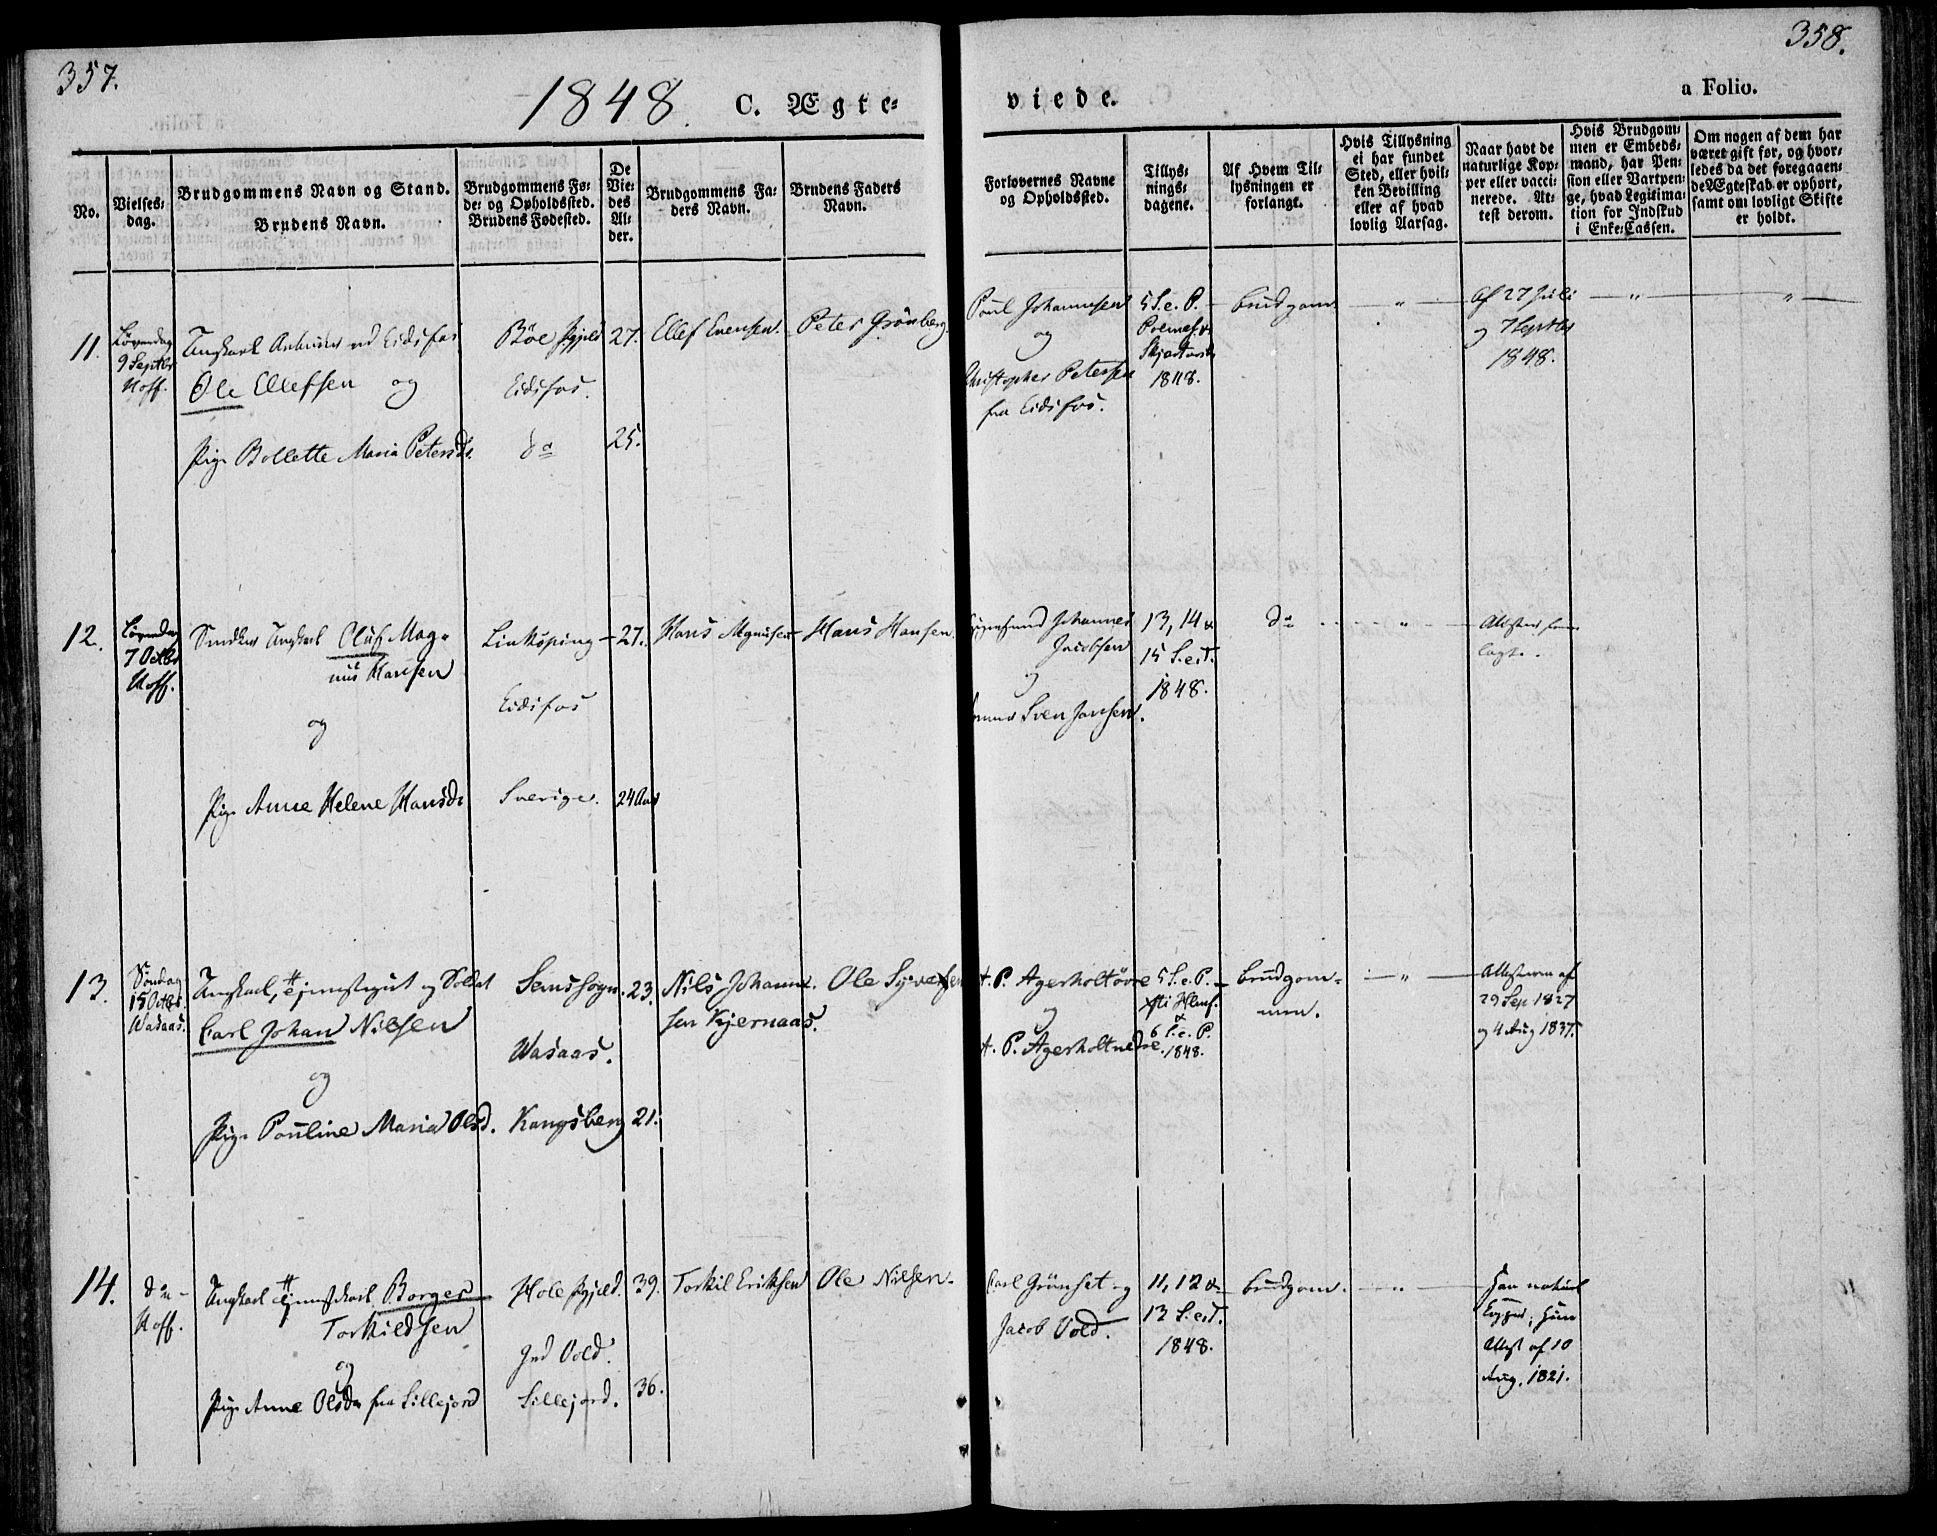 357.
358.
1848. C. Ægte=
viede.
a Folio.
No.
Vielses=
dag.
Brudgommens Navn og Stand.
Brudens Navn.
Brudgommens Fø=
de= og Opholdssted.
Brudens Fødested.
De
Vie=
des
Al=
der.
Brudgommens Fa=
ders Navn.
Brudens Faders
Navn.
Forlovernes Navne
og Opholdssted.
Tillys=
nings=
dagene.
Af Hvem Til=
lysningen er
forlangt.
Hvis Tillysning
ei har fundet
Sted, eller hvil=
ken Bevilling
eller af hvad
lovlig Aarsag.
Naar havt de
naturlige Kop=
per eller vacci=
nerede. At=
test derom.
Hvis Brudgom=
men er Embeds=
mand, har Pen=
sion eller Vartpen=
ge, hvad Legitima=
tion for Indskud
i Enke=Cassen.
Om nogen af dem har
været gift før, og hvor=
ledes da det foregaaen=
de Ægteskab er ophørt,
samt om lovligt Skifte
er holdt.
11.
Løverdag
9 Septbr
Hoff.
Ungkarl Arbeider ved Eidsfos
Ole Ellefsen og
Pige Bollette Maria Petersd.
Böe Pgjeld
Eidsfos.
do
27.
25.
Ellef Evensen.
Peter Grönberg
Poul Johannesen
og
Christopher Petersen
fra Eidsfos.
5 S. e. P.
1848.
Brudgom.
"
Af 27 Juli
og 7 Septbr
1848.
"
"
12.
Løverdag
7 Octbr
Hoff.
Smed Ungkarl Oluf Mag=
nus Hansen
og
Pige Anne Helene Hansd.
Linköping
Eidsfos
Sverige.
27.
24 Aar
Hans Mgnusen
Hans Hansen.
Johannes
Jacobsen
og
Sven Jansen.
13, 14 &
15 S. e. T.
1848.
do
"
Attester frem
lagt.
13.
Søndag
15 Octbr.
Wasaas.
Ungkarl, Tjenestegut og Soldat
Carl Johan Nilsen
og
Pige Pouline Maria Olsd.
Sems sogn.
Wasaas.
Kongsberg
23.
21.
Nils Johanne=
sen Kjernaas.
Ole Syversen
A. P. Agerholt övre
og
A. P. Agerholt nedre.
5 S. e. P.
&
6 S. e. P.
1848.
Brudgom=
men.
"
Attesterne af
29 Sep 1827
og 4 Aug 1837.
14.
do
Hoff.
Ungkarl Tjenestekarl Borger
Torkildsen
og
Pige Anne Olsdr fra Sillejord
Hole Pgjeld.
Ind Vold.
Sillejord.
39.
36.
Torkil Eriksen
Ole Nilsen.
Carl Grönset og
Jacob Vold.
11, 12 &
13 S. e. T.
1848.
Brudgom.
"
Han naturl
Kopper; Hun
Attest af 10
Aug. 1821.